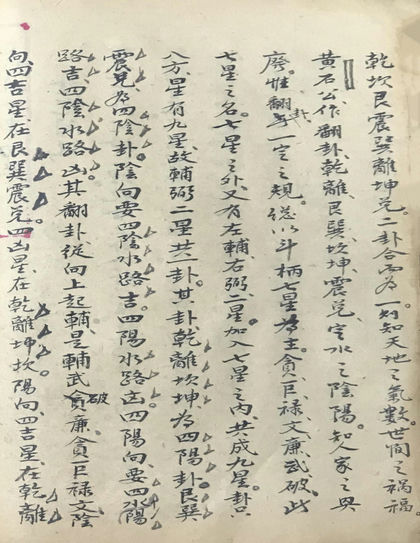 乾坎艮震巽離坤兌二卦合而為一則知天地之氣數世間之禍福。
黃石公作翻卦乾離艮巽坎坤震兌定水之陰陽知人家之興
廢。惟翻卦一定之規。從以斗柄七星為主。貪巨祿文廉武破此
七星之名。七星之外又有左輔右弼二星加入七星之內共成九星卦只
八方星有九星故輔弼二星共一卦其卦乾離坎坤為四陽卦艮巽
震兌為四陰卦陰向要四陰水路吉。四陽水路凶四陽向要四水陽
路吉四陰水路凶其翻卦從向上起輔是輔武破廉貪巨祿文陰
向四吉星在艮巽震兌四凶星在乾離坤坎陽向四吉星在乾離